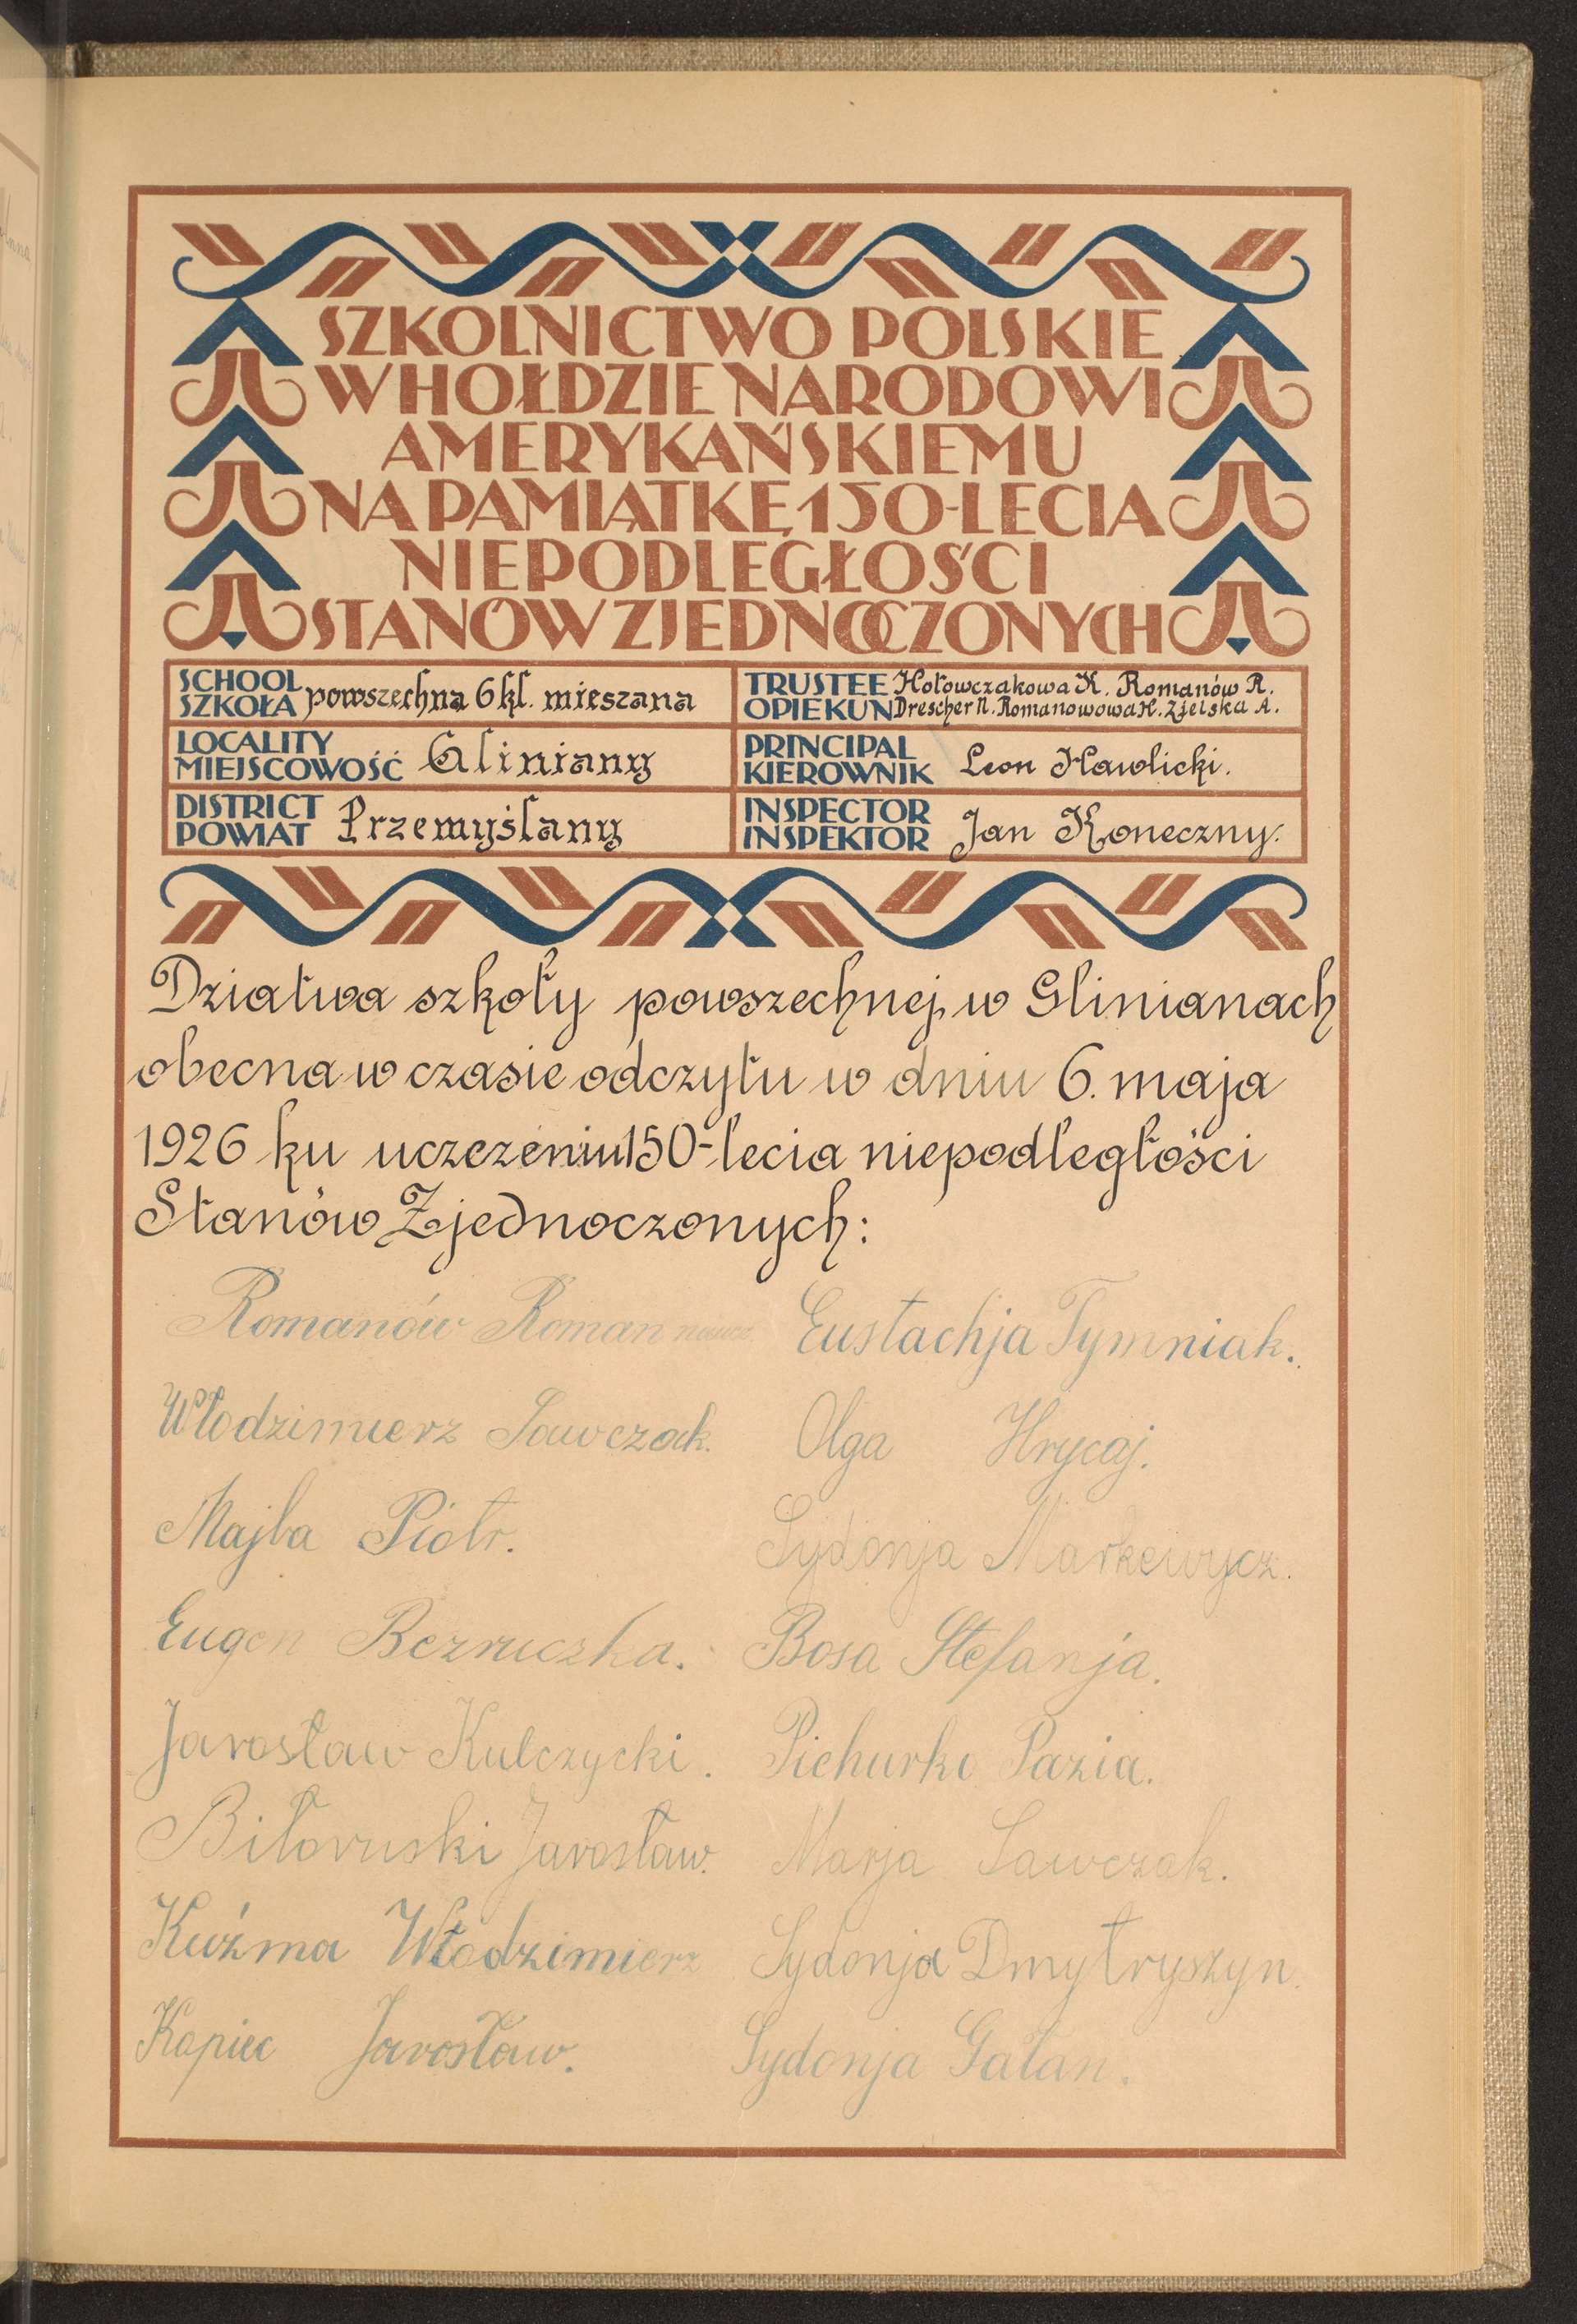 SZKOLNICTWO POLSKIE
W HOŁDZIE NARODOWI
AMERYKAŃSKIEMU
NA PAMIĄTKĘ 150-LECIA
NIEPODLEGŁOŚCI
STANÓW ZJEDNOCZONYCH
SCHOOL
SZKOŁA powszechna 6 kl. mieszana
TRUSTEE Hołowczakowa K. Romanów R.
OPIEKUN Drescher N. Romanowowa H. Zielska A.
LOCALITY
MIEJSCOWOŚĆ Gliniany
PRINCIPAL
KIEROWNIK Leon Hawlicki.
DISTRICT
POWIAT Przemyślany
INSPECTOR
INSPEKTOR Jan Koneczny.
Dziatwa szkoły powszechnej w Glinianach
obecna w czasie odczytu w dniu 6. maja
1926 ku uczczeniu 150-lecia niepodległości
Stanów Zjednoczonych:
Romanów Roman
Eustachja Tymniak.
Włodzimierz Sawczak.
Olga Hrycaj.
Majba Piotr.
Sydonja Markewycz.
Eugen Bezruczka.
Bosa Stefanja.
Jarosław Kulczycki.
Pichurko Pazia.
Biłoruski Jarosław.
Marja Sawczak.
Kuźma Włodzimierz
Sydonja Dmytryszyn.
Kopiec Jarosław.
Sydonja Gałan.